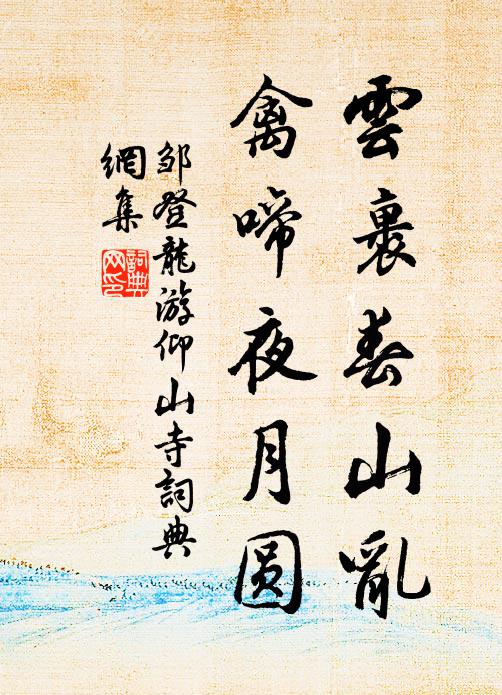 雲裏春山亂
禽啼夜月圆
邹登龍游仰山寺詞典
網集
詞典
网印